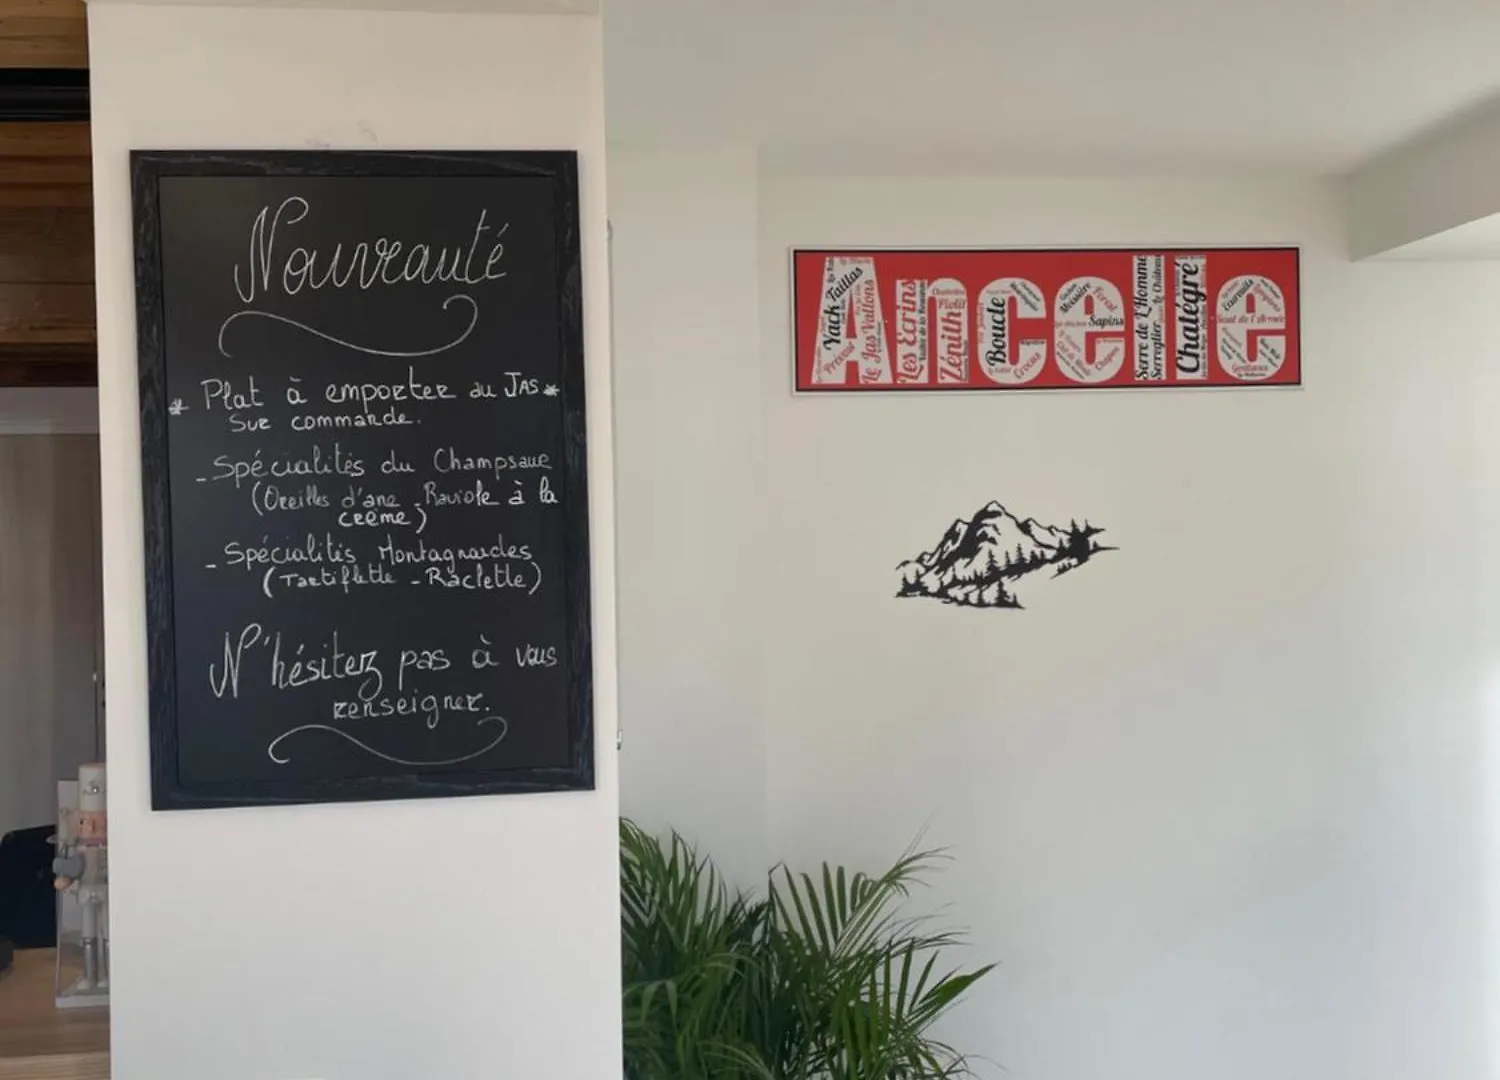 Nouveauté
* Plat à emporter au JAS *
Sur commande.
- Spécialités du Champsaur
(Oreilles d'ane - Raviole à la
crème)
- Spécialités Montagnardes
(Tartiflette - Raclette)
N'hésitez pas à vous
renseigner.
Ancelle
Yack Taillas
Le Jas Vallons
Les Ecrins
Zénith
Piolit
Boucle
Crocus
Sapins
Serre de L'Homme
Serreglier
Le Château
Chategré
Ecureuils
Gentianes